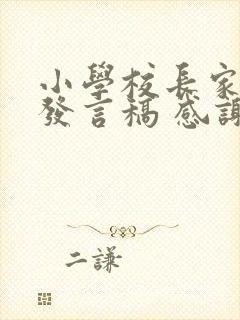 小學校長家
發言稿 感謝
二謙